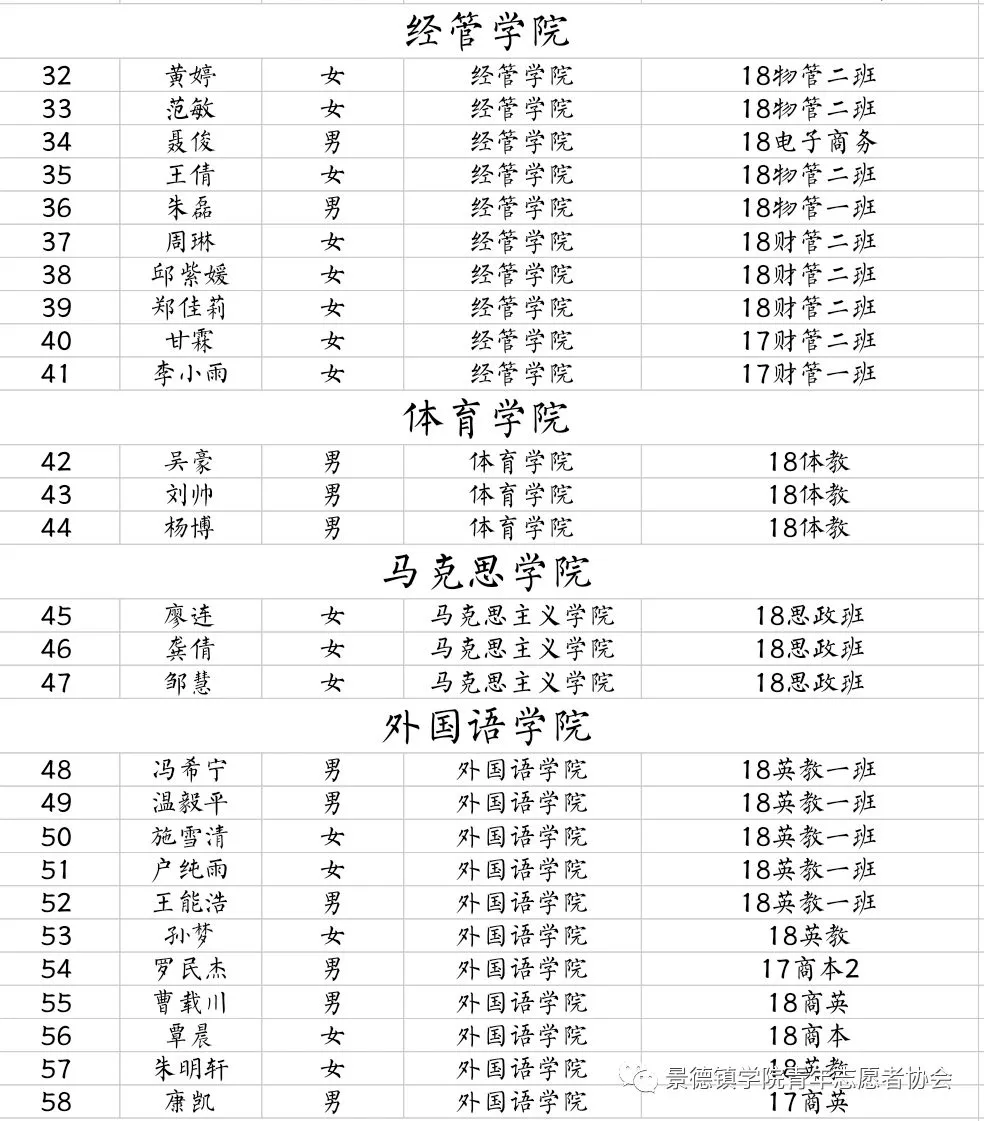 经管学院
32 黄婷 女 经管学院 18物管二班
33 范敏 女 经管学院 18物管二班
34 聂俊 男 经管学院 18电子商务
35 王倩 女 经管学院 18物管二班
36 朱磊 男 经管学院 18物管一班
37 周琳 女 经管学院 18财管二班
38 邱紫媛 女 经管学院 18财管二班
39 郑佳莉 女 经管学院 18财管二班
40 甘霖 女 经管学院 17财管二班
41 李小雨 女 经管学院 17财管一班
体育学院
42 吴豪 男 体育学院 18体教
43 刘帅 男 体育学院 18体教
44 杨博 男 体育学院 18体教
马克思学院
45 廖连 女 马克思主义学院 18思政班
46 龚倩 女 马克思主义学院 18思政班
47 邹慧 女 马克思主义学院 18思政班
外国语学院
48 冯希宁 男 外国语学院 18英教一班
49 温毅平 男 外国语学院 18英教一班
50 施雪清 女 外国语学院 18英教一班
51 户纯雨 女 外国语学院 18英教一班
52 王能浩 男 外国语学院 18英教一班
53 孙梦 女 外国语学院 18英教
54 罗民杰 男 外国语学院 17商本2
55 曹载川 男 外国语学院 18商英
56 覃晨 女 外国语学院 18商本
57 朱明轩 女 外国语学院 18英教
景德镇学院青年志愿者协会
58 康凯 男 外国语学院 17商英